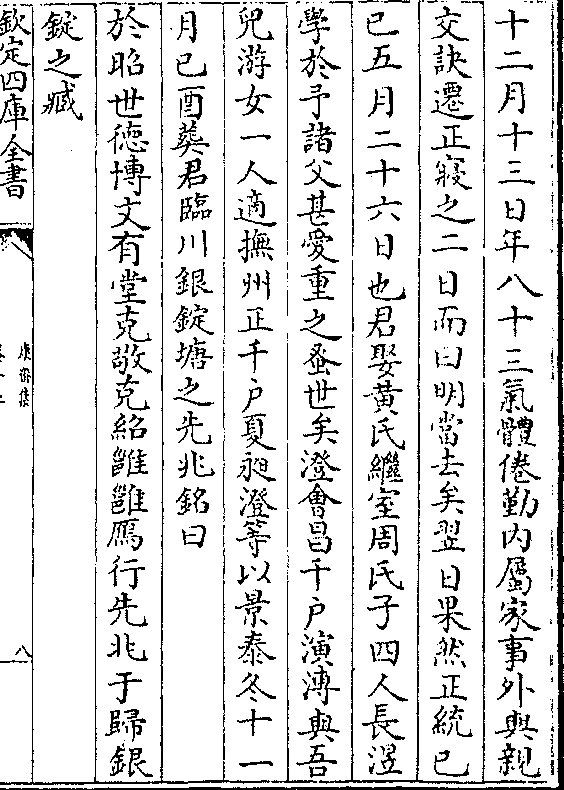 十二月十三日年八十三氣體倦勤内屬家事外與親
交訣遷正寢之二日而曰明當去矣翌日果然正統已
已五月二十六日也君娶黄氏繼室周氏子四人長涅
學於予諸父甚愛重之蚤世矣澄會昌千户演漙與吾
兒游女一人適撫州正千户夏昶澄等以景泰冬十一
月已酉葬君臨川銀錠塘之先兆銘曰
於昭世徳博文有堂克敬克紹雝雝鴈行先兆于歸銀
錠之臧
欽定四庫全書
康齋集
八